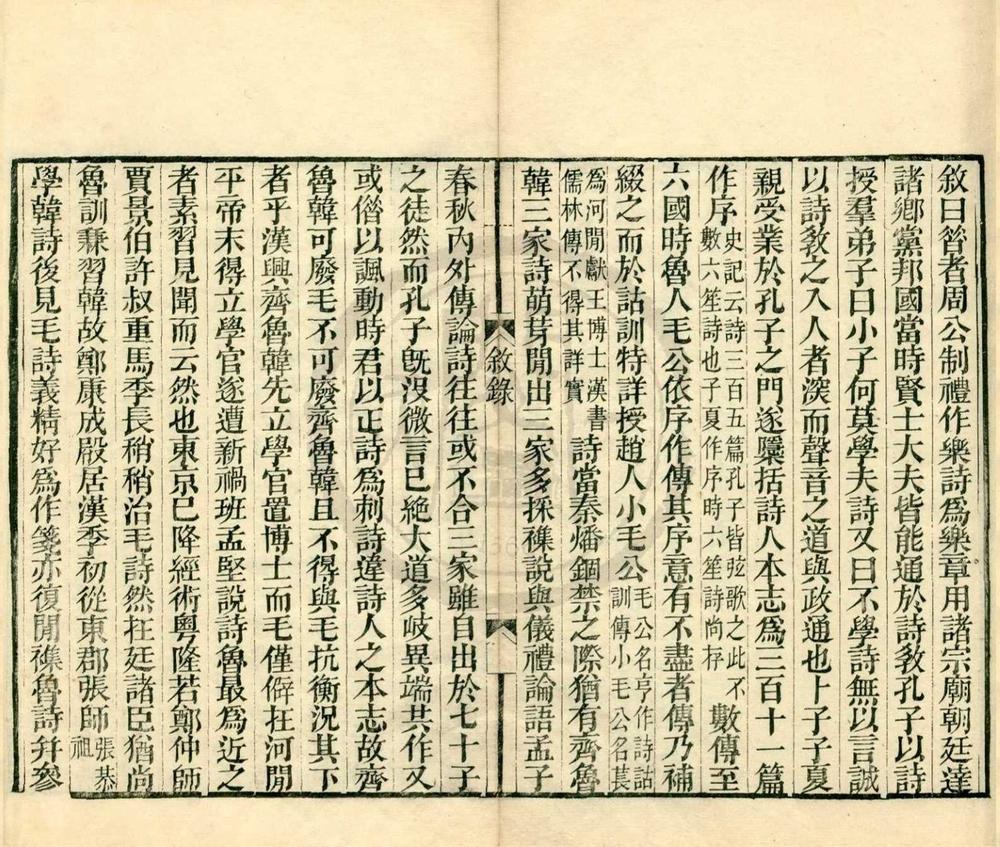 敘曰昝者周公制禮作樂詩爲樂章用諸宗廟朝廷達
諸鄉黨邦國當時賢士大夫皆能通於詩教孔子以詩
授羣弟子曰小子何莫學夫詩又曰不學詩無以言誠
以詩教之入人者深而聲音之道與政通也卜子子夏
親受業於孔子之門遂櫽括詩人本志爲三百十一篇
作序史記云詩三百五篇孔子皆弦歌之此不數六笙詩也子夏作序時六笙詩尚存數傳至
六國時魯人毛公依序作傳其序意有不盡者傳乃補
綴之而於詁訓特詳授趙人小毛公毛公名亨作詩詁訓傳小毛公名萇
爲河閒獻王博士漢書儒林傳不得其詳實詩當秦燔錮禁之際猶有齊魯
韓三家詩萌芽閒出三家多採襍說與儀禮論語孟子
敘錄
一
春秋內外傳論詩往往或不合三家雖自出於七十子
之徒然而孔子旣沒微言已絕大道多岐異端共作又
或僭以諷動時君以正詩爲刺詩違詩人之本志故齊
魯韓可廢毛不可廢齊魯韓且不得與毛抗衡況其下
者乎漢興齊魯韓先立學官置博士而毛僅僻在河閒
平帝末得立學官遂遭新禍班孟堅說詩魯最爲近之
者素習見聞而云然也東京已降經術粤隆若鄭仲師
賈景伯許叔重馬季長稍稍治毛詩然在廷諸臣猶尚
魯訓兼習韓故鄭康成殿居漢季初從東郡張師張恭祖
學韓詩後見毛詩義精好爲作箋亦復閒襍魯詩幷參